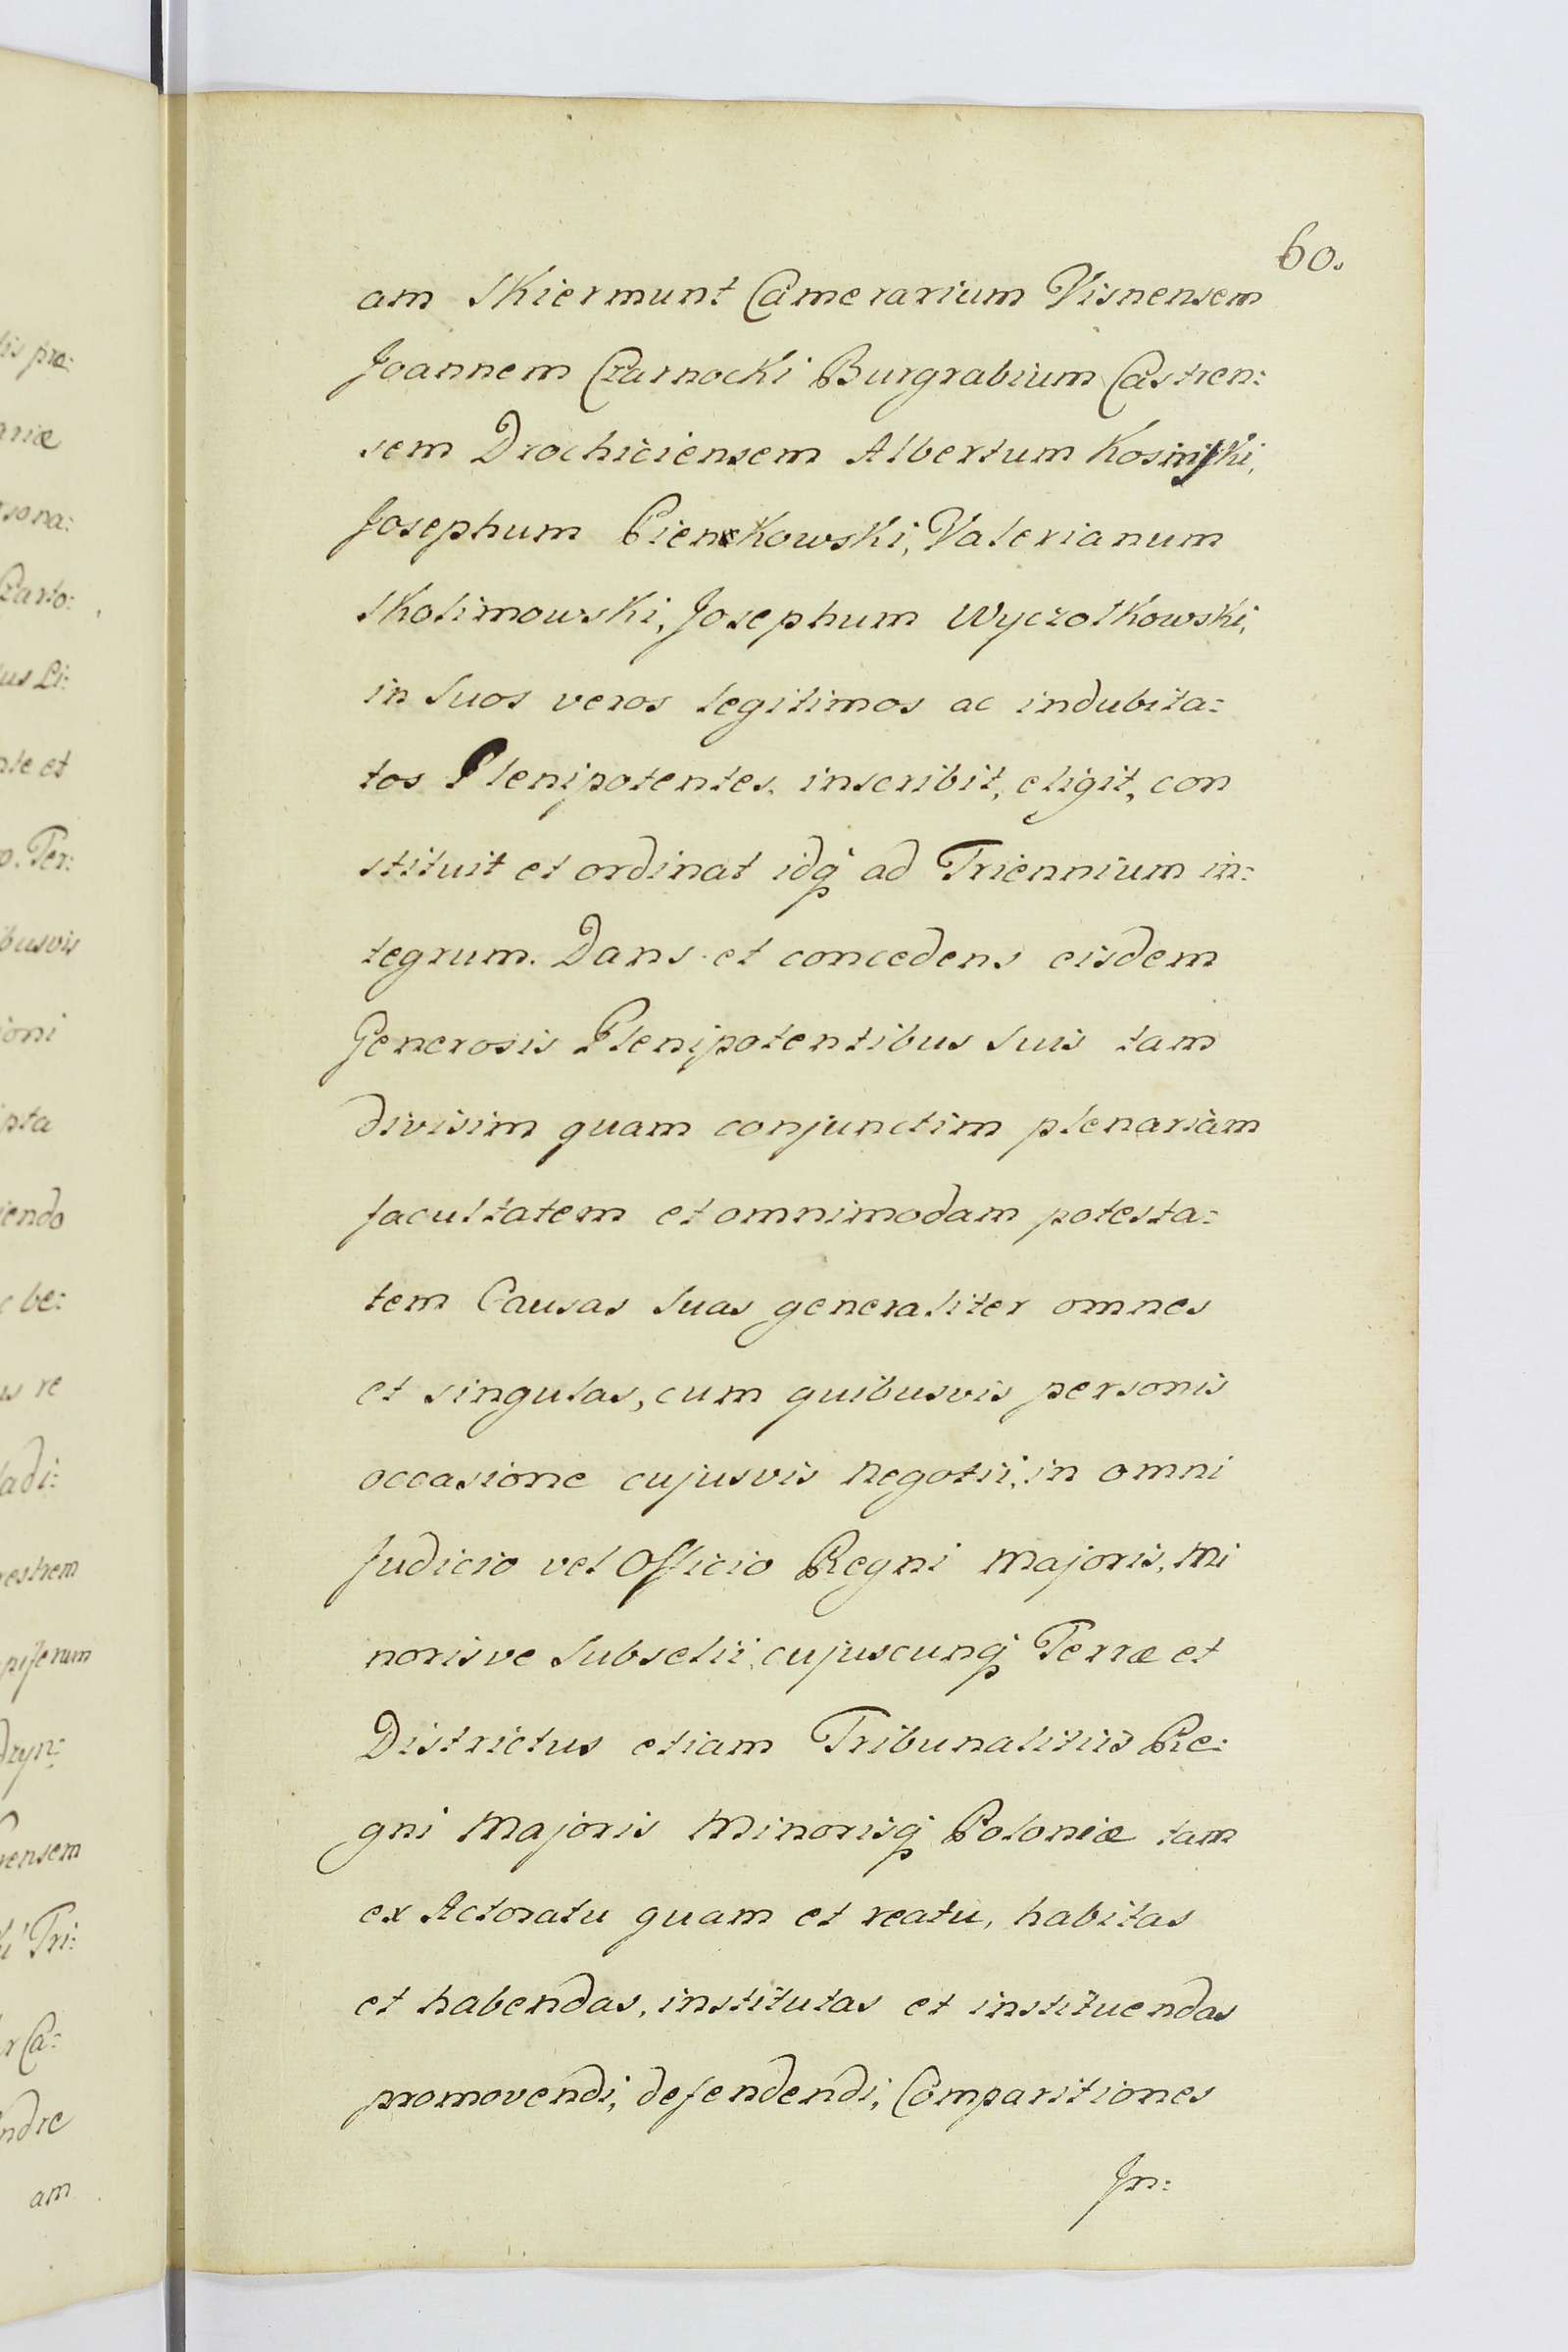 60.
am Skiermunt Camerarium Visnensem
Joannem Czarnocki Burgrabium Castren:
sem Drochiciensem Albertum Kosinski,
Josephum Pienkowski, Valerianum
Skolimowski, Josephum Wyczolkowski,
in Suos veros legitimos ac indubita:
tos Plenipotentes, inscribit, eligit, con
stituit et ordinat idq́ ad Triennium in:
tegrum. Dans et concedens eisdem
Generosis Plenipotentibus Suis tam
divisim quam conjunctim plenariam
facultatem et omnimodam potesta:
tem Causas Suas generaliter omnes
et singulas, cum quibusvis personis
occasione cujusvis Negotii, in omni
Judicio vel Officio Regni Majoris, Mi
norisve Subselii, cujuscunq́ Terræ et
Districtus etiam Tribunalitiis Re:
gni Majoris Minorisq́ Poloniæ tam
ex Actoratu quam et reatu, habitas
et habendas, institutas et instituendas
promovendi, defendendi, Comparitiones
Jn: